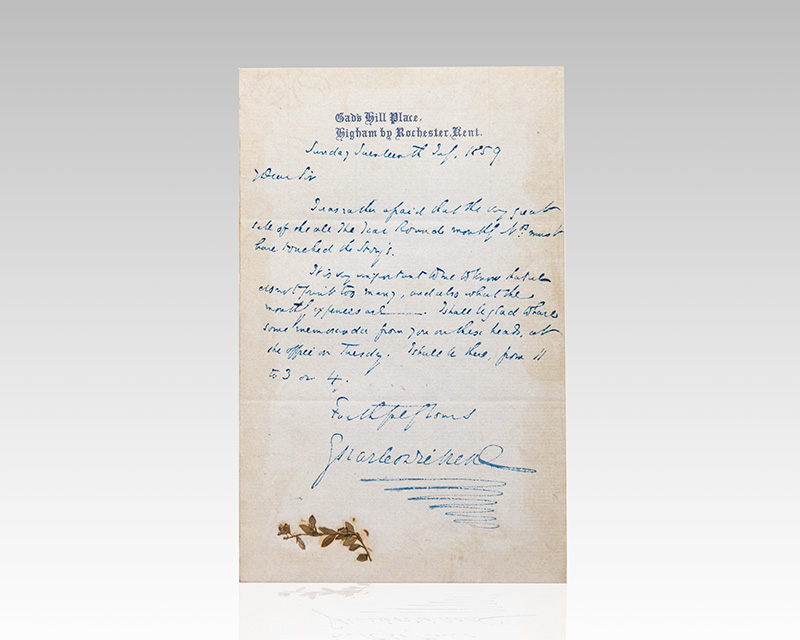 Gad's Hill Place,
Higham by Rochester, Kent.
Sunday Seventeenth July, 1859
Dear Sir
I was rather afraid that the very great
sale of the All The Year Round monthly No. must
have touched the Story's.
It is very important to me to know that we
do not print too many, and also what the
monthly expenses are. I shall be glad to have
some memoranda from you on these heads, at
the office on Tuesday. I shall be there, from 11
to 3 or 4.
Faithfully Yours
Charles Dickens